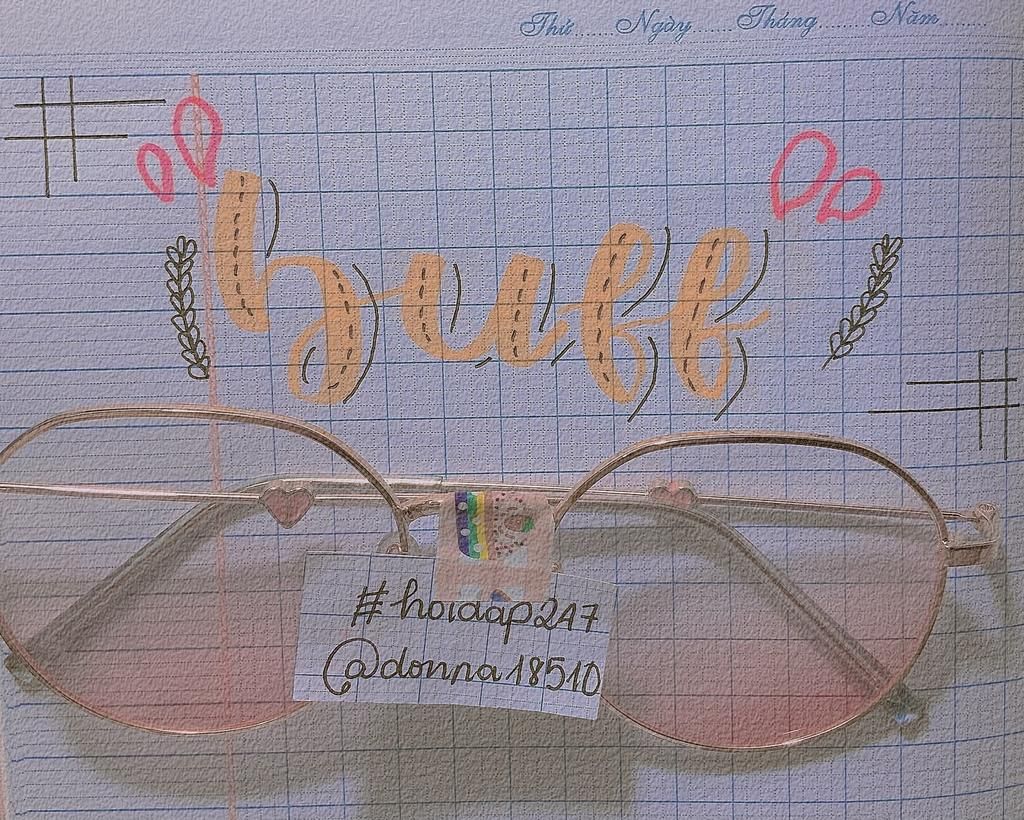 Thứ........Ngày.......Tháng........Năm........
huff
#hoidap247
@donna18510